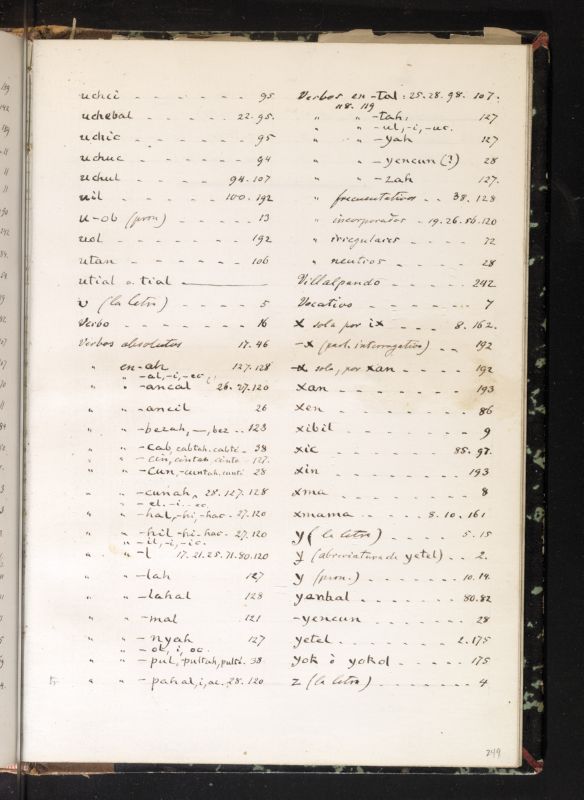 uchci - - - - - - - 95
uchebal - - - - - 22. 95.
uchic - - - - - - 95
uchuc - - - - - - 94
uchul - - - - - 94. 107
uil - - - - - 100. 192
u-ob (pron) - - - - - 13
uol - - - - - - - 192
utan - - - - - - - 106
utial o. tial
U (la letra) - - - - - 5
Verbo - - - - - - - 16
Verbos absolutos 17. 46
" en -ah 127. 128
-al, -i, -ec
" " -ancal 26. 27. 120
" " -ancil 26
" " -bezah, —, bez .. 123
" " -cab, cabtah. cabté - 38
" " -cin, cintah. cinte - 127.
" " -cun, -cuntah. cunté 28
" " -cunah, 28. 127. 128
" " -el. -i. -ec
" " -hal, -hi, -hac. 27. 120
" " -hil -hi- hac. 27. 120
" " -il, -i, -ic.
" " -l 17. 21. 25. 71. 80. 120
" " -lah 127
" " -lahal 128
" " -mal 121
" " -nyah 127
" " -ol, i, oc.
" " -pul, -pultah, pulté. 38
" " -pahal, i, ac. 28. 120
Verbos en -tal : 25. 28. 98. 107.
118. 119
" " -tah, 127
" " -ul, -i, -uc.
" " -yah 127
" " -yencun (?) 28
" " -zah 127.
" frecuentativos - - 38. 128
" incorporados - 19. 26. 56. 120
" irregulares - - - - 72
" neutros - - - - 28
Villalpando - - - - - 242
Vocativo - - - - - 7
X sola por ix - - - - 8. 162.
-X (part. interrogativa) - - 192
-X sola, por xan - - - - 192
xan - - - - - - - 193
xen - - - - - - - 86
xibil - - - - - - - 9
xic - - - - - - 85. 97.
xin - - - - - - - 193
xma - - - - - - - 8
xmama - - - - - 8. 10. 161
y (la letra) - - - - 5. 15
y (abreviatura de yetel) - - 2.
y (pron.) - - - - - 10. 14.
yanhal - - - - - - 80. 82
-yencun - - - - - - 28
yetel - - - - - - 2. 175
yok ò yokol - - - - - 175
z (la letra) - - - - - - 4
249